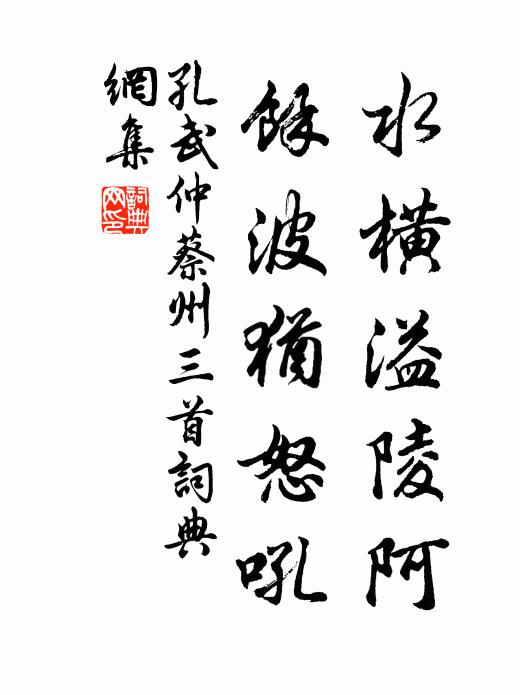 水橫溢陵阿
餘波猶怒吼
孔武仲蔡州三首詞典
網集
詞典網印